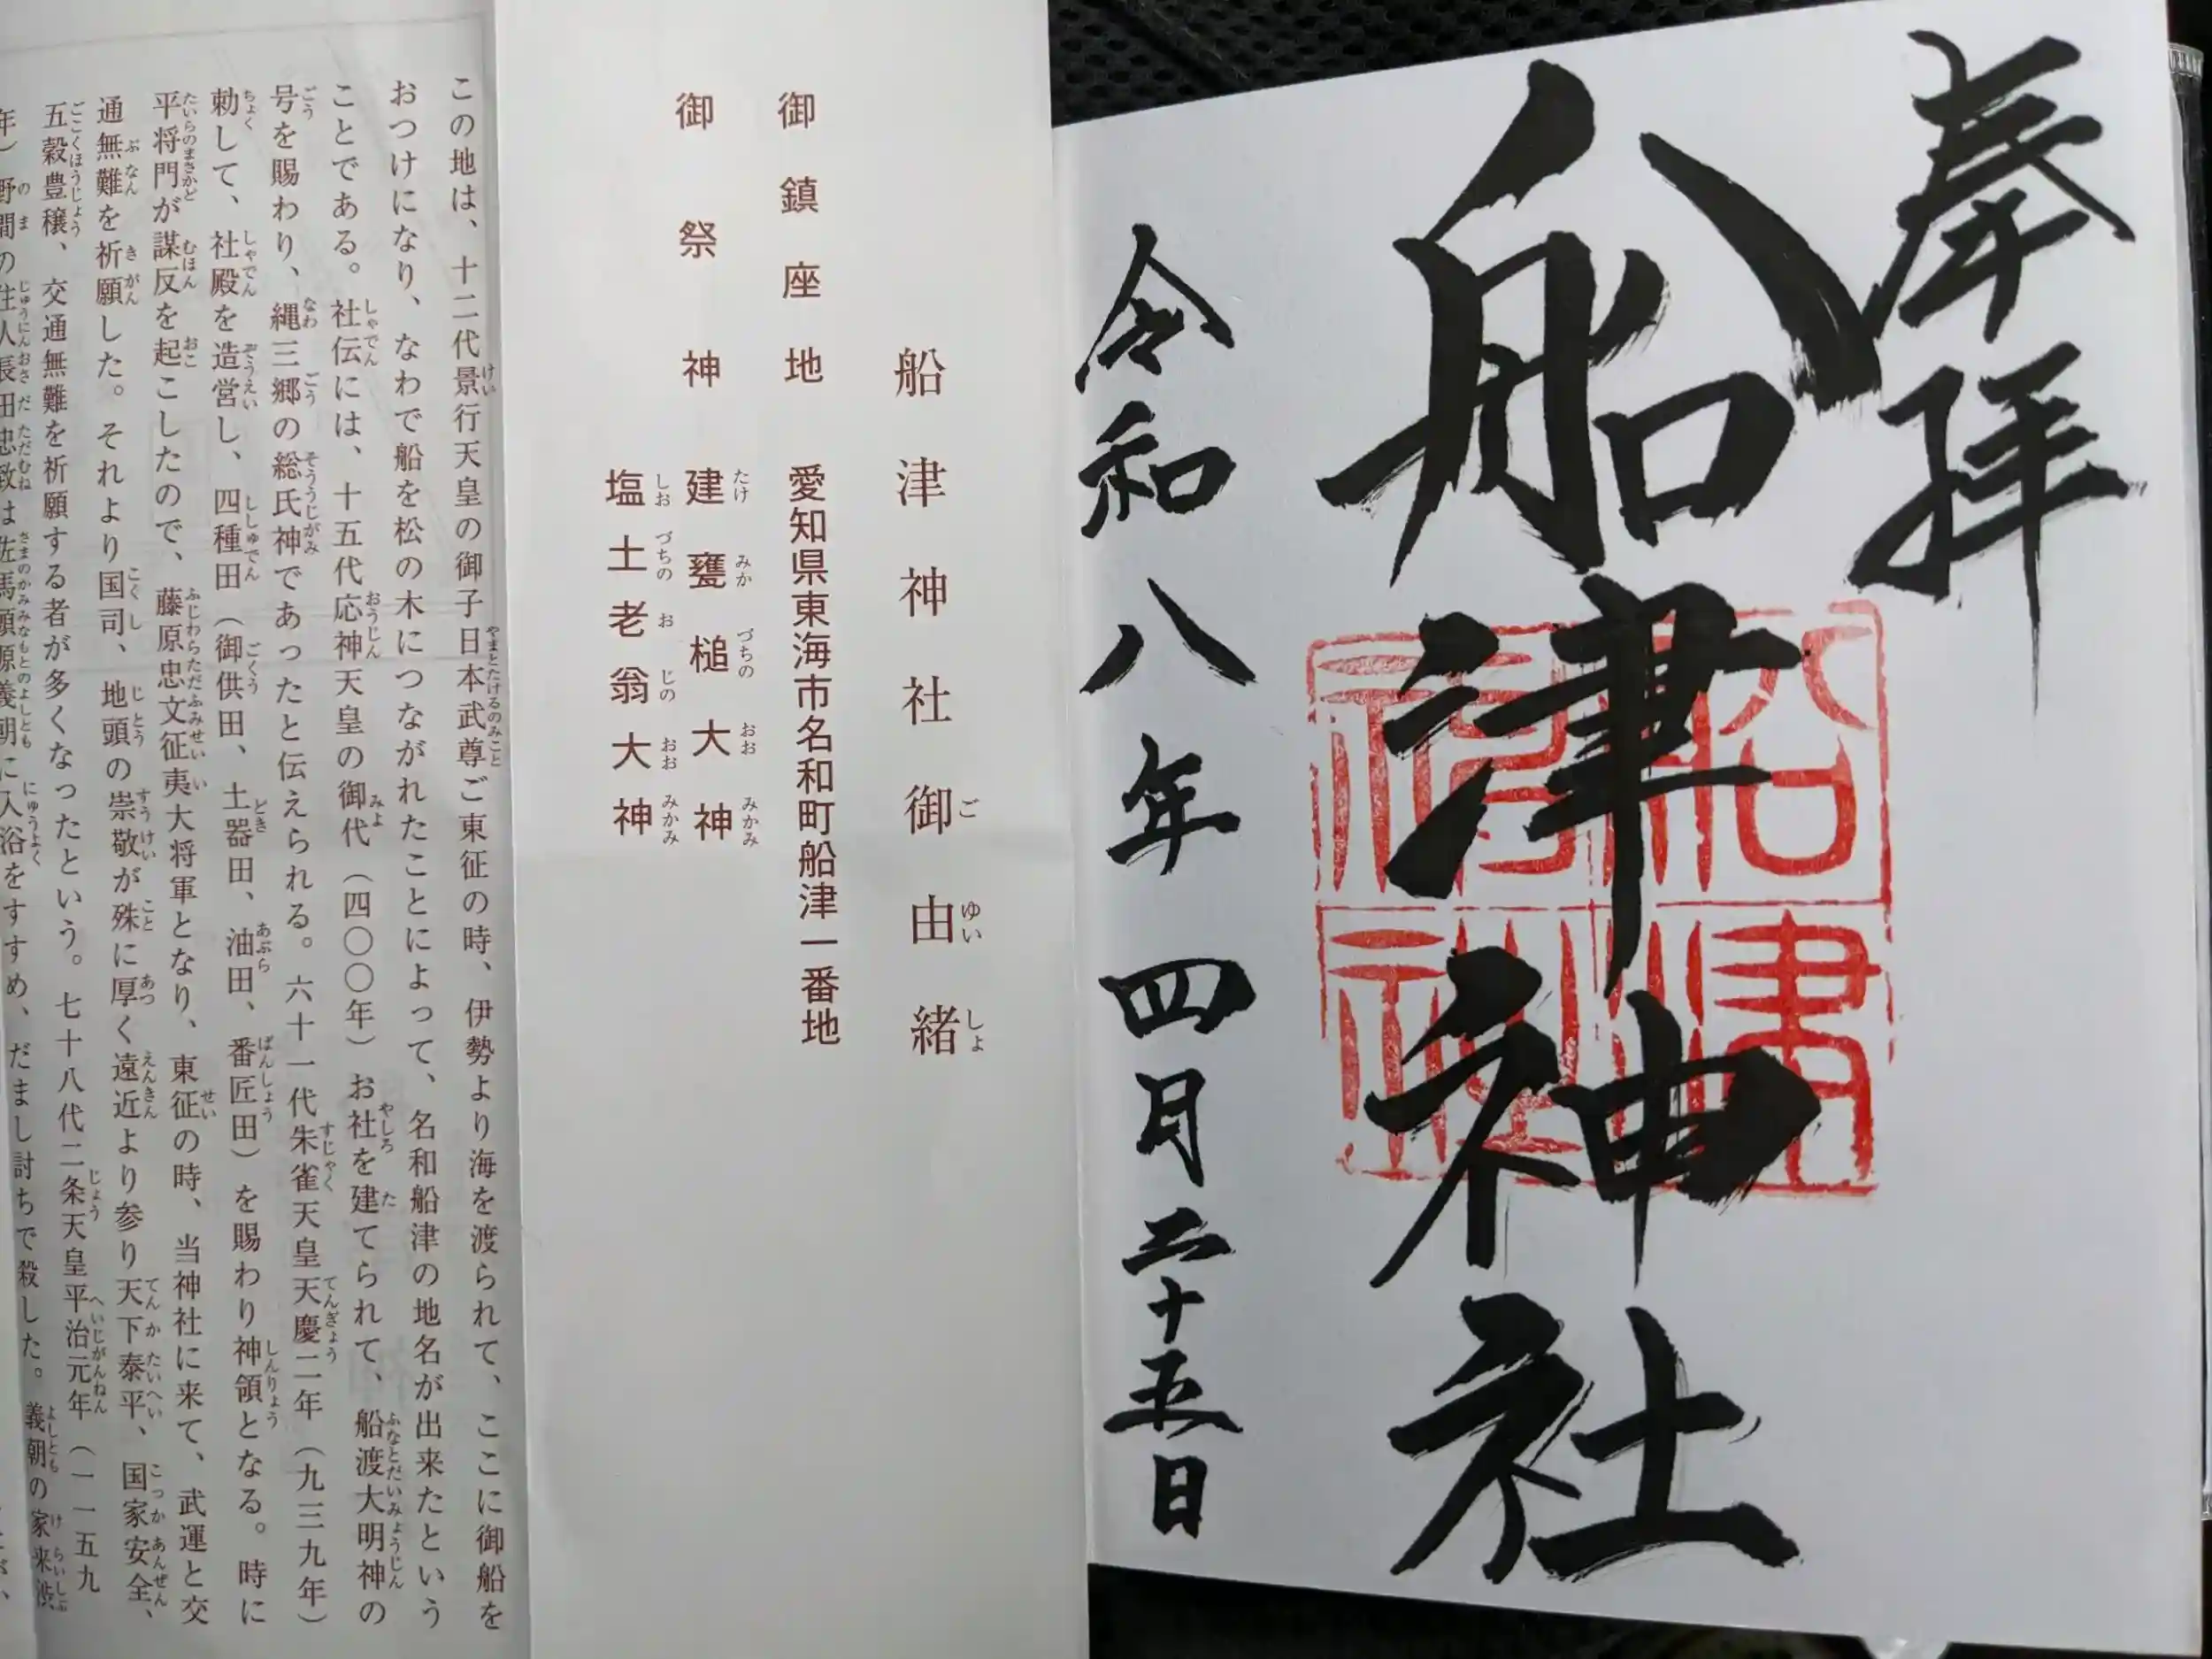 奉拝
船津神社
船津神社
令和八年四月二十五日
船津神社御由緒
御鎮座地 愛知県東海市名和町船津一番地
御祭神 建甕槌大神
塩土老翁大神
この地は、十二代景行天皇の御子日本武尊ご東征の時、伊勢より海を渡られて、ここに御船を
おつけになり、なわで船を松の木につながれたことによって、名和船津の地名が出来たという
ことである。社伝には、十五代応神天皇の御代（四〇〇年）お社を建てられて、船渡大明神の
号を賜わり、縄三郷の総氏神であったと伝えられる。六十一代朱雀天皇天慶二年（九三九年）
勅して、社殿を造営し、四種田（御供田、土器田、油田、番匠田）を賜わり神領となる。時に
平将門が謀反を起こしたので、藤原忠文征夷大将軍となり、東征の時、当神社に来て、武運と交
通無難を祈願した。それより国司、地頭の崇敬が殊に厚く遠近より参り天下泰平、国家安全、
五穀豊穣、交通無難を祈願する者が多くなったという。七十八代二条天皇平治元年（一一五九
年）野間の住人長田忠致は佐馬頭源義朝に入浴をすすめ、だまし討ちで殺した。義朝の家来渋